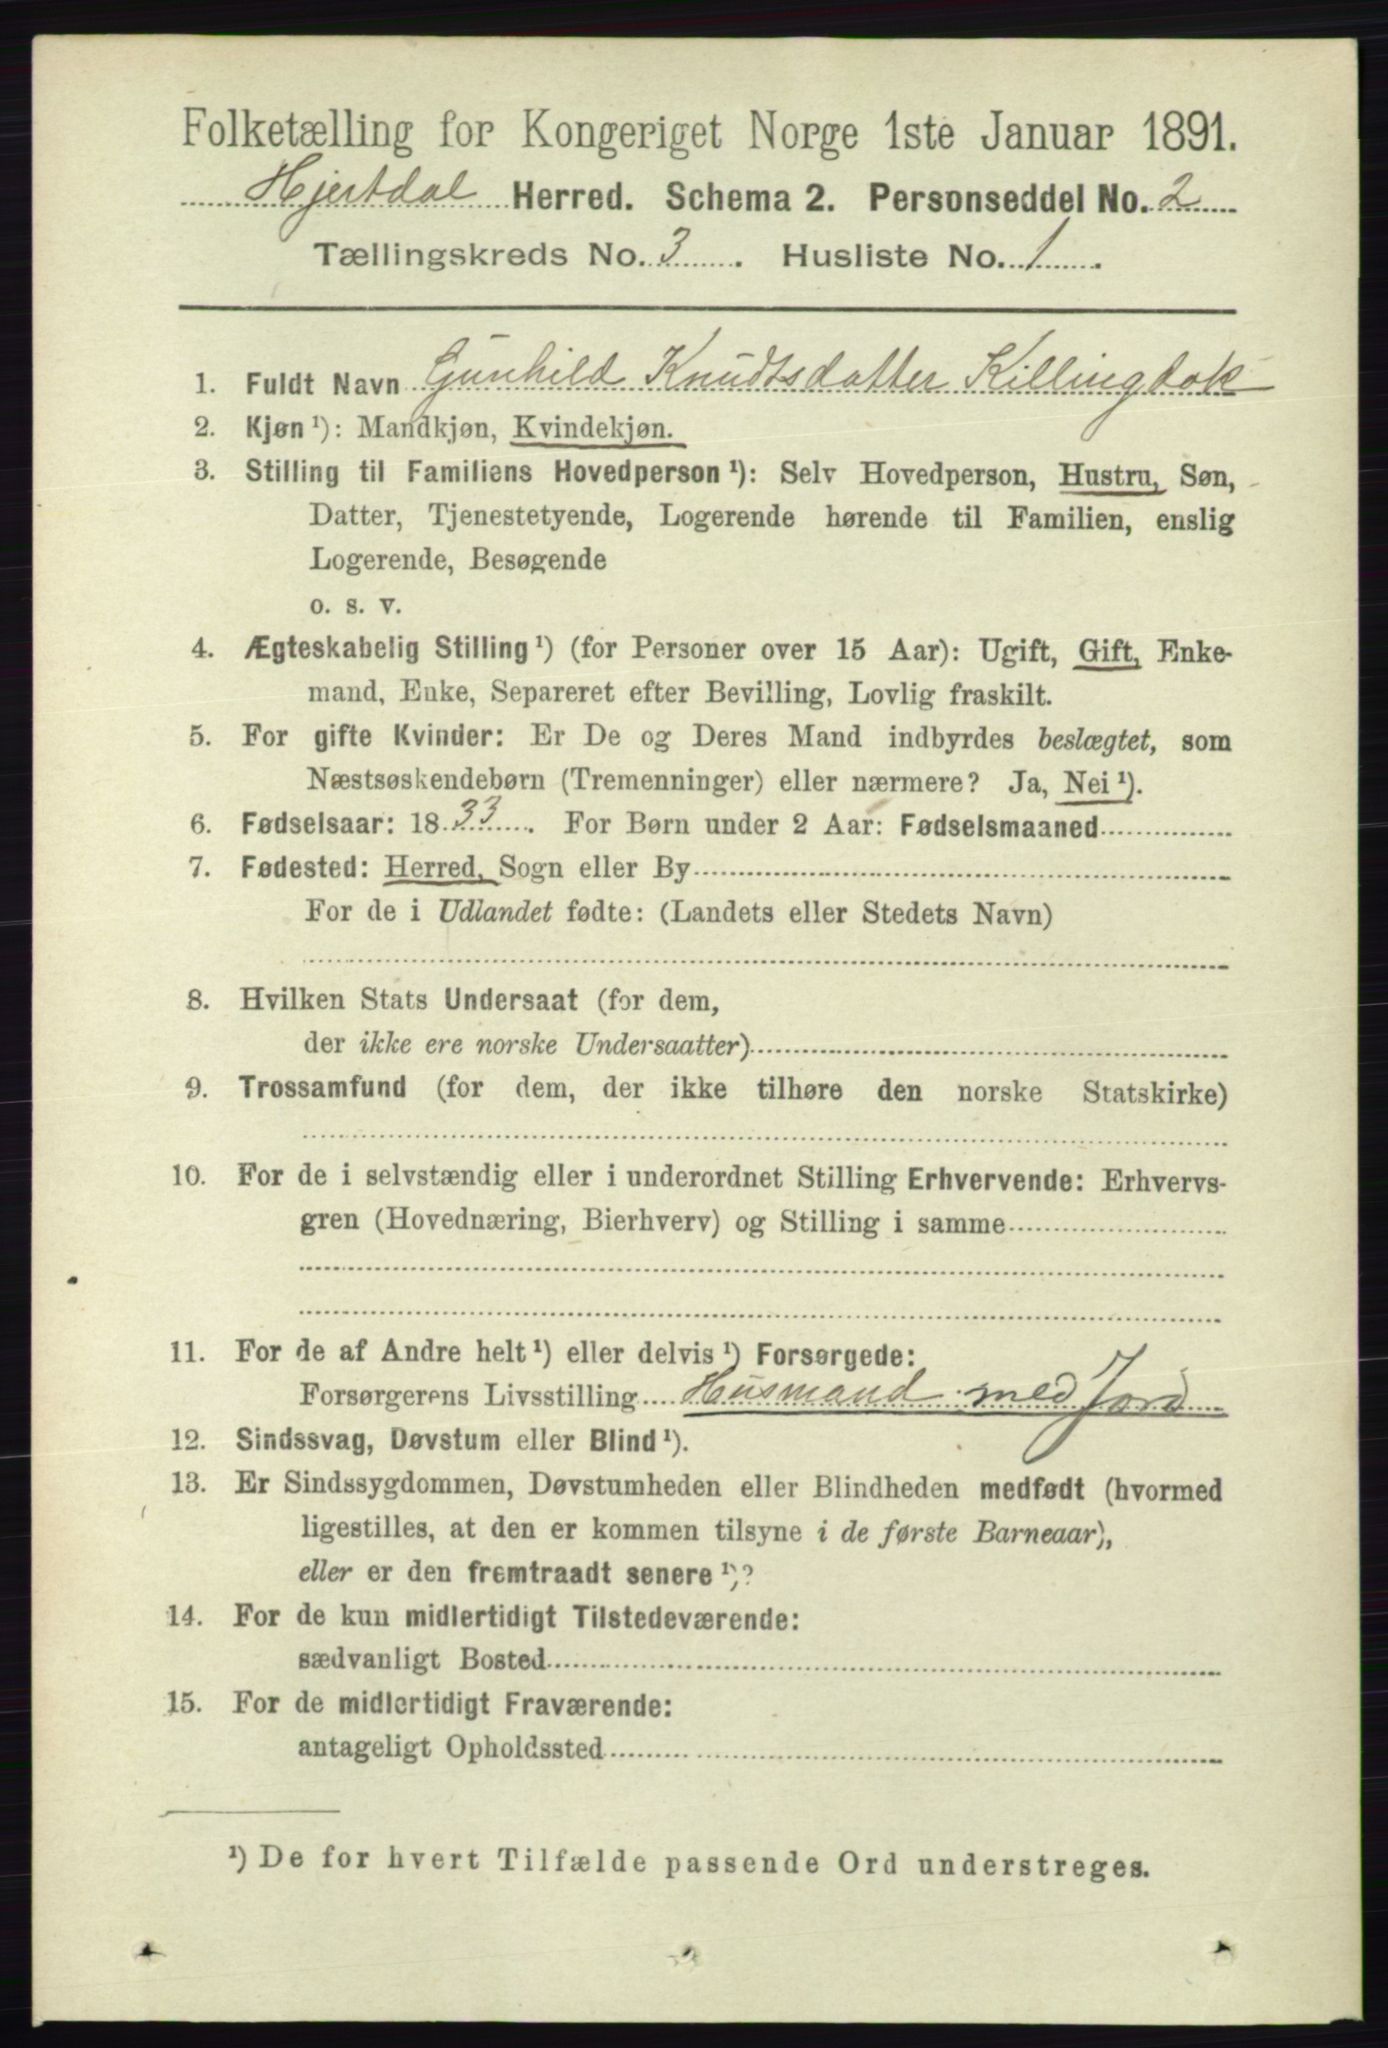 Folketælling for Kongeriget Norge 1ste Januar 1891.
Hjertdal Herred. Schema 2. Personseddel No. 2
Tællingskreds No. 3. Husliste No. 1.
1. Fuldt Navn Gunhild Knudtsdatter
2. Kjøn ¹): Mandkjøn, Kvindekjøn.
3. Stilling til Familiens Hovedperson ¹): Selv Hovedperson, Hustru, Søn,
Datter, Tjenestetyende, Logerende hørende til Familien, enslig
Logerende, Besøgende
o. s. v.
4. Ægteskabelig Stilling ¹) (for Personer over 15 Aar): Ugift, Gift, Enke-
mand, Enke, Separeret efter Bevilling, Lovlig fraskilt.
5. For gifte Kvinder: Er De og Deres Mand indbyrdes beslægtet, som
Næstsøskendebørn (Tremenninger) eller nærmere? Ja, Nei ¹).
6. Fødselsaar: 1833. For Børn under 2 Aar: Fødselsmaaned
7. Fødested: Herred, Sogn eller By
For de i Udlandet fødte: (Landets eller Stedets Navn)
8. Hvilken Stats Undersaat (for dem,
der ikke ere norske Undersaatter)
9. Trossamfund (for dem, der ikke tilhøre den norske Statskirke)
10. For de i selvstændig eller i underordnet Stilling Erhvervende: Erhvervs-
gren (Hovednæring, Bierhverv) og Stilling i samme
11. For de af Andre helt ¹) eller delvis ¹) Forsørgede:
Forsørgerens Livsstilling Husmand med Jord
12. Sindssvag, Døvstum eller Blind ¹).
13. Er Sindssygdommen, Døvstumheden eller Blindheden medfødt (hvormed
ligestilles, at den er kommen tilsyne i de første Barneaar),
eller er den fremtraadt senere ¹)?
14. For de kun midlertidigt Tilstedeværende:
sædvanligt Bosted
15. For de midlertidigt Fraværende:
antageligt Opholdssted
¹) De for hvert Tilfælde passende Ord understreges.